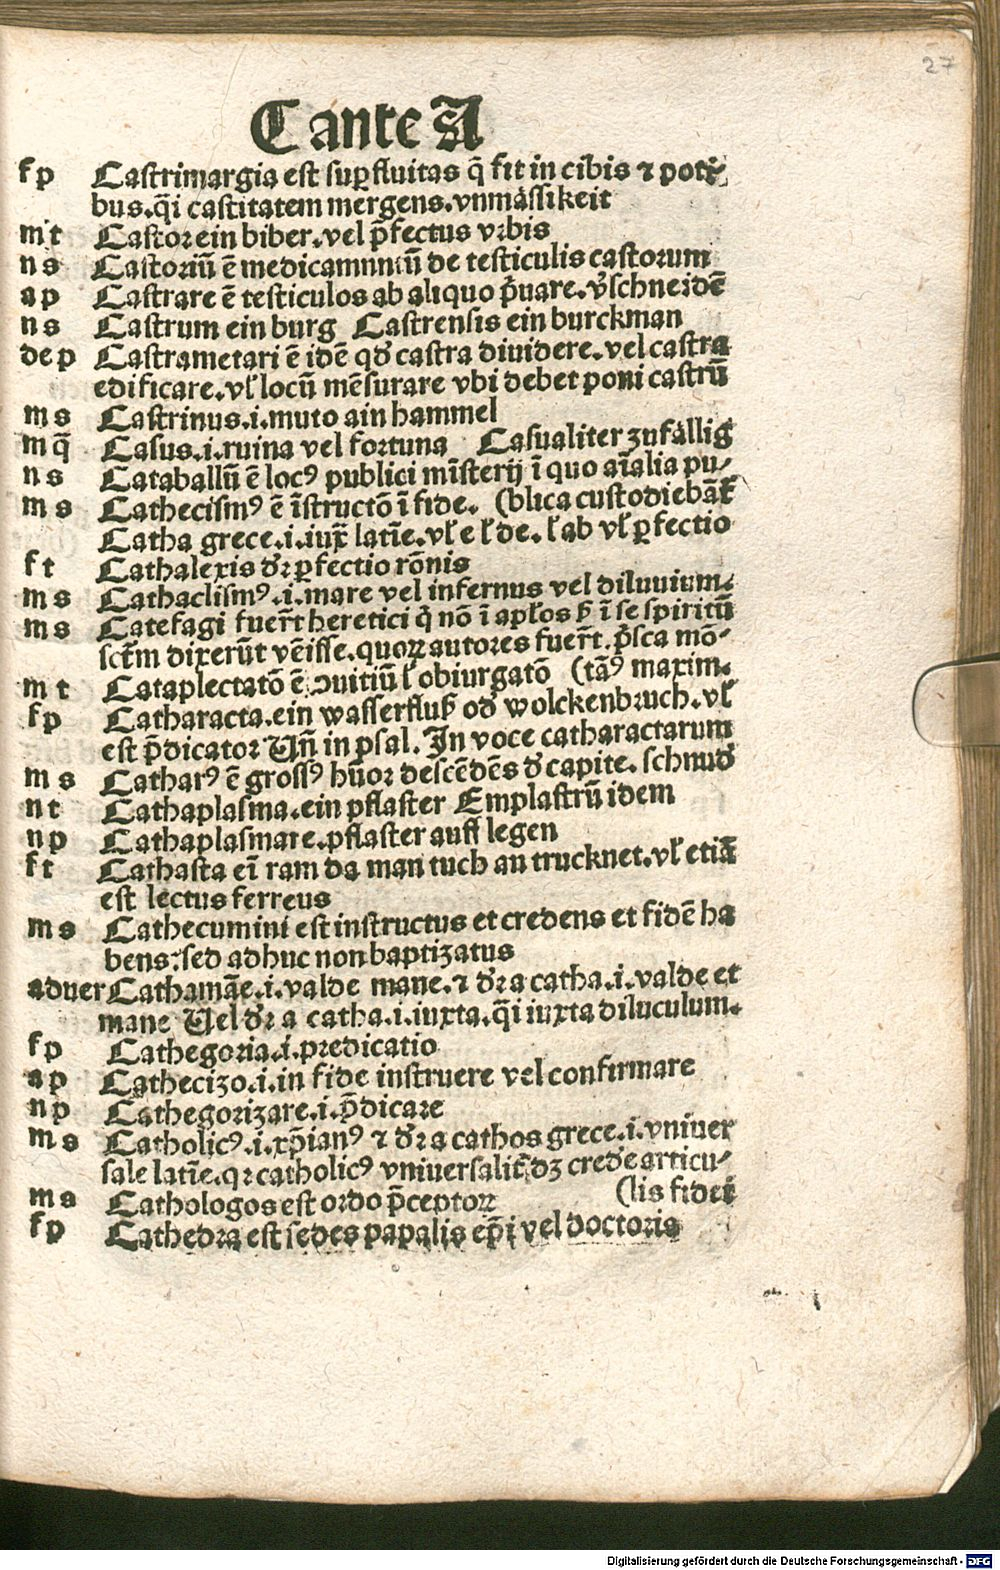 27
C ante A
f p Castrimargia est suꝑfluitas q̄ fit in cibis ⁊ poti⸗
bus.q̄i castitatem mergens.vnmässikeit
m t Castor ein biber.vel p̄fectus vrbis
n s Castoriū ē de testiculis castorum
a p Castrare ē testiculos ab aliquo p̄uare.v̓schneidē
n s Castrum ein burg Castrensis ein burckman
de p Castrametari ē idē qd̓ castra diuidere.vel castra
edificare.vl̓ locū mēsurare vbi debet poni castrū
m s Castrinus.i.muto ain hammel
m q̄ Casus.i.ruina vel fortuna Casualiter zufällig
n s Cataballū ē locꝰ publici mīsterij ī quo aīalia pu⸗
m s Cathecismꝰ ē īstructō ī fide. (blica custodiebāt̓
Catha grece.i.iux̄ latīe.vl̓ e l̓ de.l̓ ab vl̓ ꝑfectio
f t Cathalexis dr̄ ꝑfectio rōnis
m s Cathaclismꝰ.i.mare vel infernus vel diluuium.
m s Catefagi fuer̄t heretici q̓ nō ī apl̓os sꝫ ī se spiritū
sct̄m dixerūt vēisse.quoꝝ autores fuer̄t.p̓sca mō⸗
m t Cataplectatō ē ꝯuitiū l̓ obiurgatō (tāꝰ maxim.
f p Catharacta.ein wasserfluß od̓ wolckenbruch.vl̓
est p̄dicator Vn̄ in psal.In voce catharactarum
m s Catharꝰ ē grossꝰ hūor descēdēs d̓ capite.schnud̓
n t Cathaplasma.ein pflaster Emplastrū idem
n p Cathaplasmare.pflaster auff legen
f t Cathasta eī ram da man tuch an trucknet.vl̓ etiā
est lectus ferreus
m s Cathecumini est instructus et credens et fidē ha
bens:sed adhuc non baptizatus
aduer Cathamāe.i.valde mane.⁊ dr̄ a catha.i.valde et
mane Vel dr̄ a catha.i.iuxta.q̄i iuxta diluculum.
f p Cathegoria.i.predicatio
a p Cathecizo.i.in fide instruere vel confirmare
n p Cathegorizare.i.p̄dicare
m s Catholicꝰ.i.xp̄ianꝰ ⁊ dr̄ a cathos grece.i.vniuer
sale latīe.qꝛ catholicꝰ vniuersalit̓ dꝫ cred̓e articu⸗
m s Cathologos est ordo p̄ceptoꝝ (lis fidei
f p Cathedra est sedes papalis ep̄i vel doctoris
Digitalisierung gefördert durch die Deutsche Forschungsgemeinschaft - DFG